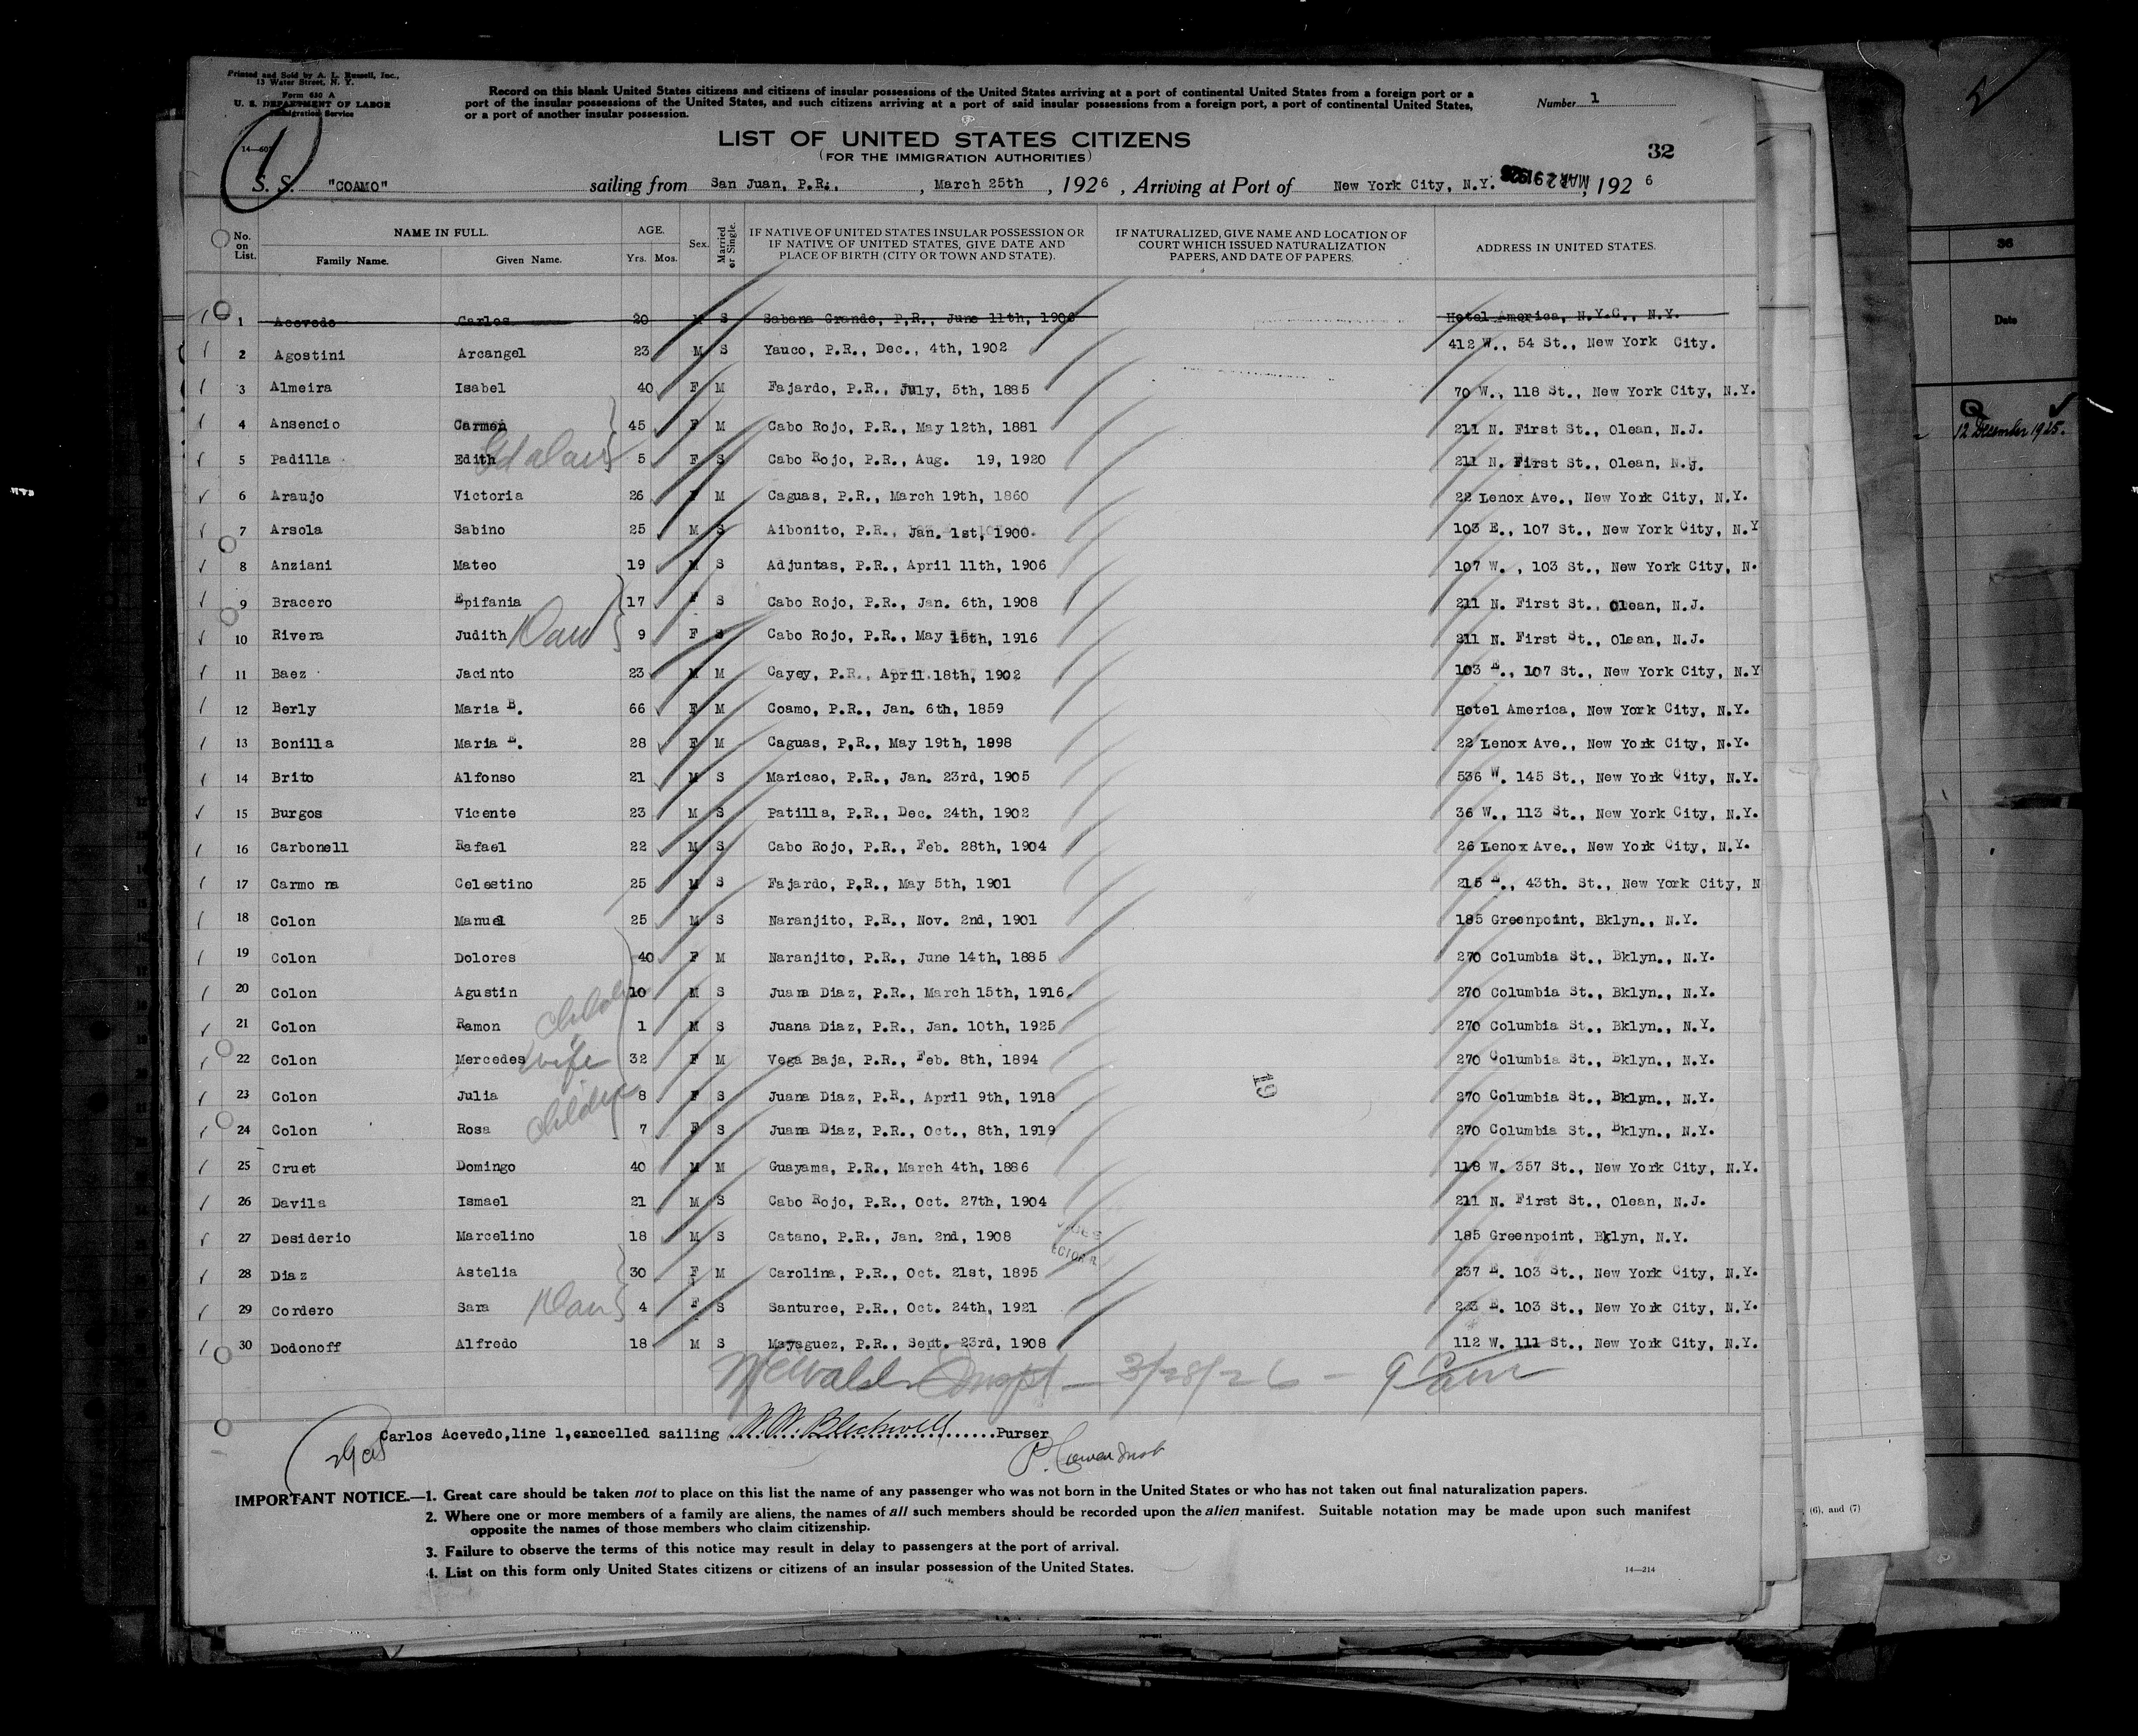 Printed and Sold by A. L. Russell, Inc.,
13 Water Street, N. Y.
Form 630 A
U. S. DEPARTMENT OF LABOR
Immigration Service
Record on this blank United States citizens and citizens of insular possessions of the United States arriving at a port of continental United States from a foreign port or a
port of the insular possessions of the United States, and such citizens arriving at a port of said insular possessions from a foreign port, a port of continental United States,
or a port of another insular possession.
Number 1
1
LIST OF UNITED STATES CITIZENS
(FOR THE IMMIGRATION AUTHORITIES)
32
S. S. "COAMO" sailing from San Juan, P.R., , March 25th , 1926 , Arriving at Port of New York City, N.Y. MAR 29 1926 , 1926
No. on List. NAME IN FULL. Family Name. Given Name. AGE. Yrs. Mos. Sex. Married or Single. IF NATIVE OF UNITED STATES INSULAR POSSESSION OR IF NATIVE OF UNITED STATES, GIVE DATE AND PLACE OF BIRTH (CITY OR TOWN AND STATE). IF NATURALIZED, GIVE NAME AND LOCATION OF COURT WHICH ISSUED NATURALIZATION PAPERS, AND DATE OF PAPERS. ADDRESS IN UNITED STATES.
1 Acevedo Carlos 20 M S Sabana Grande, P.R., June 11th, 1906 Hotel America, N.Y.C., N.Y.
2 Agostini Arcangel 23 M S Yauco, P.R., Dec., 4th, 1902 412 W., 54 St., New York City.
3 Almeira Isabel 40 F M Fajardo, P.R., July, 5th, 1885 70 W., 118 St., New York City, N.Y.
4 Ansencio Carmen 45 F M Cabo Rojo, P.R., May 12th, 1881 211 N. First St., Olean, N.J.
5 Padilla Edith 5 F S Cabo Rojo, P.R., Aug. 19, 1920 211 N. First St., Olean, N.J.
6 Araujo Victoria 26 F M Caguas, P.R., March 19th, 1860 22 Lenox Ave., New York City, N.Y.
7 Arsola Sabino 25 M S Aibonito, P.R., Jan. 1st, 1900. 103 E., 107 St., New York City, N.Y
8 Anziani Mateo 19 M S Adjuntas, P.R., April 11th, 1906 107 W. , 103 St., New York City, N.
9 Bracero Epifania 17 F S Cabo Rojo, P.R., Jan. 6th, 1908 211 N. First St., Olean, N.J.
10 Rivera Judith Dau 9 F S Cabo Rojo, P.R., May 15th, 1916 211 N. First St., Olean, N.J.
11 Baez Jacinto 23 M M Cayey, P.R., April 18th, 1902 103 E., 107 St., New York City, N.Y
12 Berly Maria B. 66 F M Coamo, P.R., Jan. 6th, 1859 Hotel America, New York City, N.Y.
13 Bonilla Maria E. 28 F M Caguas, P.R., May 19th, 1898 22 Lenox Ave., New York City, N.Y.
14 Brito Alfonso 21 M S Maricao, P.R., Jan. 23rd, 1905 536 W. 145 St., New York City, N.Y.
15 Burgos Vicente 23 M S Patilla, P.R., Dec. 24th, 1902 36 W., 113 St., New York City, N.Y.
16 Carbonell Rafael 22 M S Cabo Rojo, P.R., Feb. 28th, 1904 26 Lenox Ave., New York City, N.Y.
17 Carmona Celestino 25 M S Fajardo, P.R., May 5th, 1901 215 E., 43th. St., New York City, N
18 Colon Manuel 25 M S Naranjito, P.R., Nov. 2nd, 1901 185 Greenpoint, Bklyn., N.Y.
19 Colon Dolores 40 F M Naranjito, P.R., June 14th, 1885 270 Columbia St., Bklyn., N.Y.
20 Colon Agustin 10 M S Juana Diaz, P.R., March 15th, 1916. 270 Columbia St., Bklyn., N.Y.
21 Colon Ramon 1 M S Juana Diaz, P.R., Jan. 10th, 1925 270 Columbia St., Bklyn., N.Y.
22 Colon Mercedes wife 32 F M Vega Baja, P.R., Feb. 8th, 1894 270 Columbia St., Bklyn., N.Y.
23 Colon Julia 8 F S Juana Diaz, P.R., April 9th, 1918 270 Columbia St., Bklyn., N.Y.
24 Colon Rosa 7 F S Juana Diaz, P.R., Oct., 8th, 1919 270 Columbia St., Bklyn., N.Y.
25 Cruet Domingo 40 M M Guayama, P.R., March 4th, 1886 118 W. 357 St., New York City, N.Y.
26 Davila Ismael 21 M S Cabo Rojo, P.R., Oct. 27th, 1904 211 N. First St., Olean, N.J.
27 Desiderio Marcelino 18 M S Catano, P.R., Jan. 2nd, 1908 185 Greenpoint, Bklyn, N.Y.
28 Diaz Astelia 30 F M Carolina, P.R., Oct. 21st, 1895 237 E. 103 St., New York City, N.Y.
29 Cordero Sara Dau 4 F S Santurce, P.R., Oct. 24th, 1921 233 E. 103 St., New York City, N.Y.
30 Dodonoff Alfredo 18 M S Mayaguez, P.R., Sept. 23rd, 1908 112 W. 111 St., New York City, N.Y.
19
3/28/26
Carlos Acevedo,line 1,cancelled sailing Purser
IMPORTANT NOTICE.—1. Great care should be taken not to place on this list the name of any passenger who was not born in the United States or who has not taken out final naturalization papers.
2. Where one or more members of a family are aliens, the names of all such members should be recorded upon the alien manifest. Suitable notation may be made upon such manifest
opposite the names of those members who claim citizenship.
3. Failure to observe the terms of this notice may result in delay to passengers at the port of arrival.
4. List on this form only United States citizens or citizens of an insular possession of the United States.
14—214
36
Date
12 December 1925.
(6), and (7)